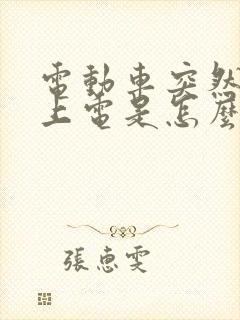 電動車突然
上電是怎麼
張惠雯